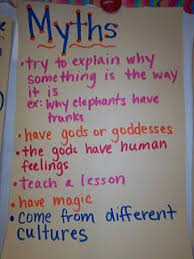 Myths
• try to explain why
something is the way
it is
ex: why elephants have
trunks
• have gods or goddesses
• the gods have human
feelings
• teach a lesson
• have magic
• come from different
cultures